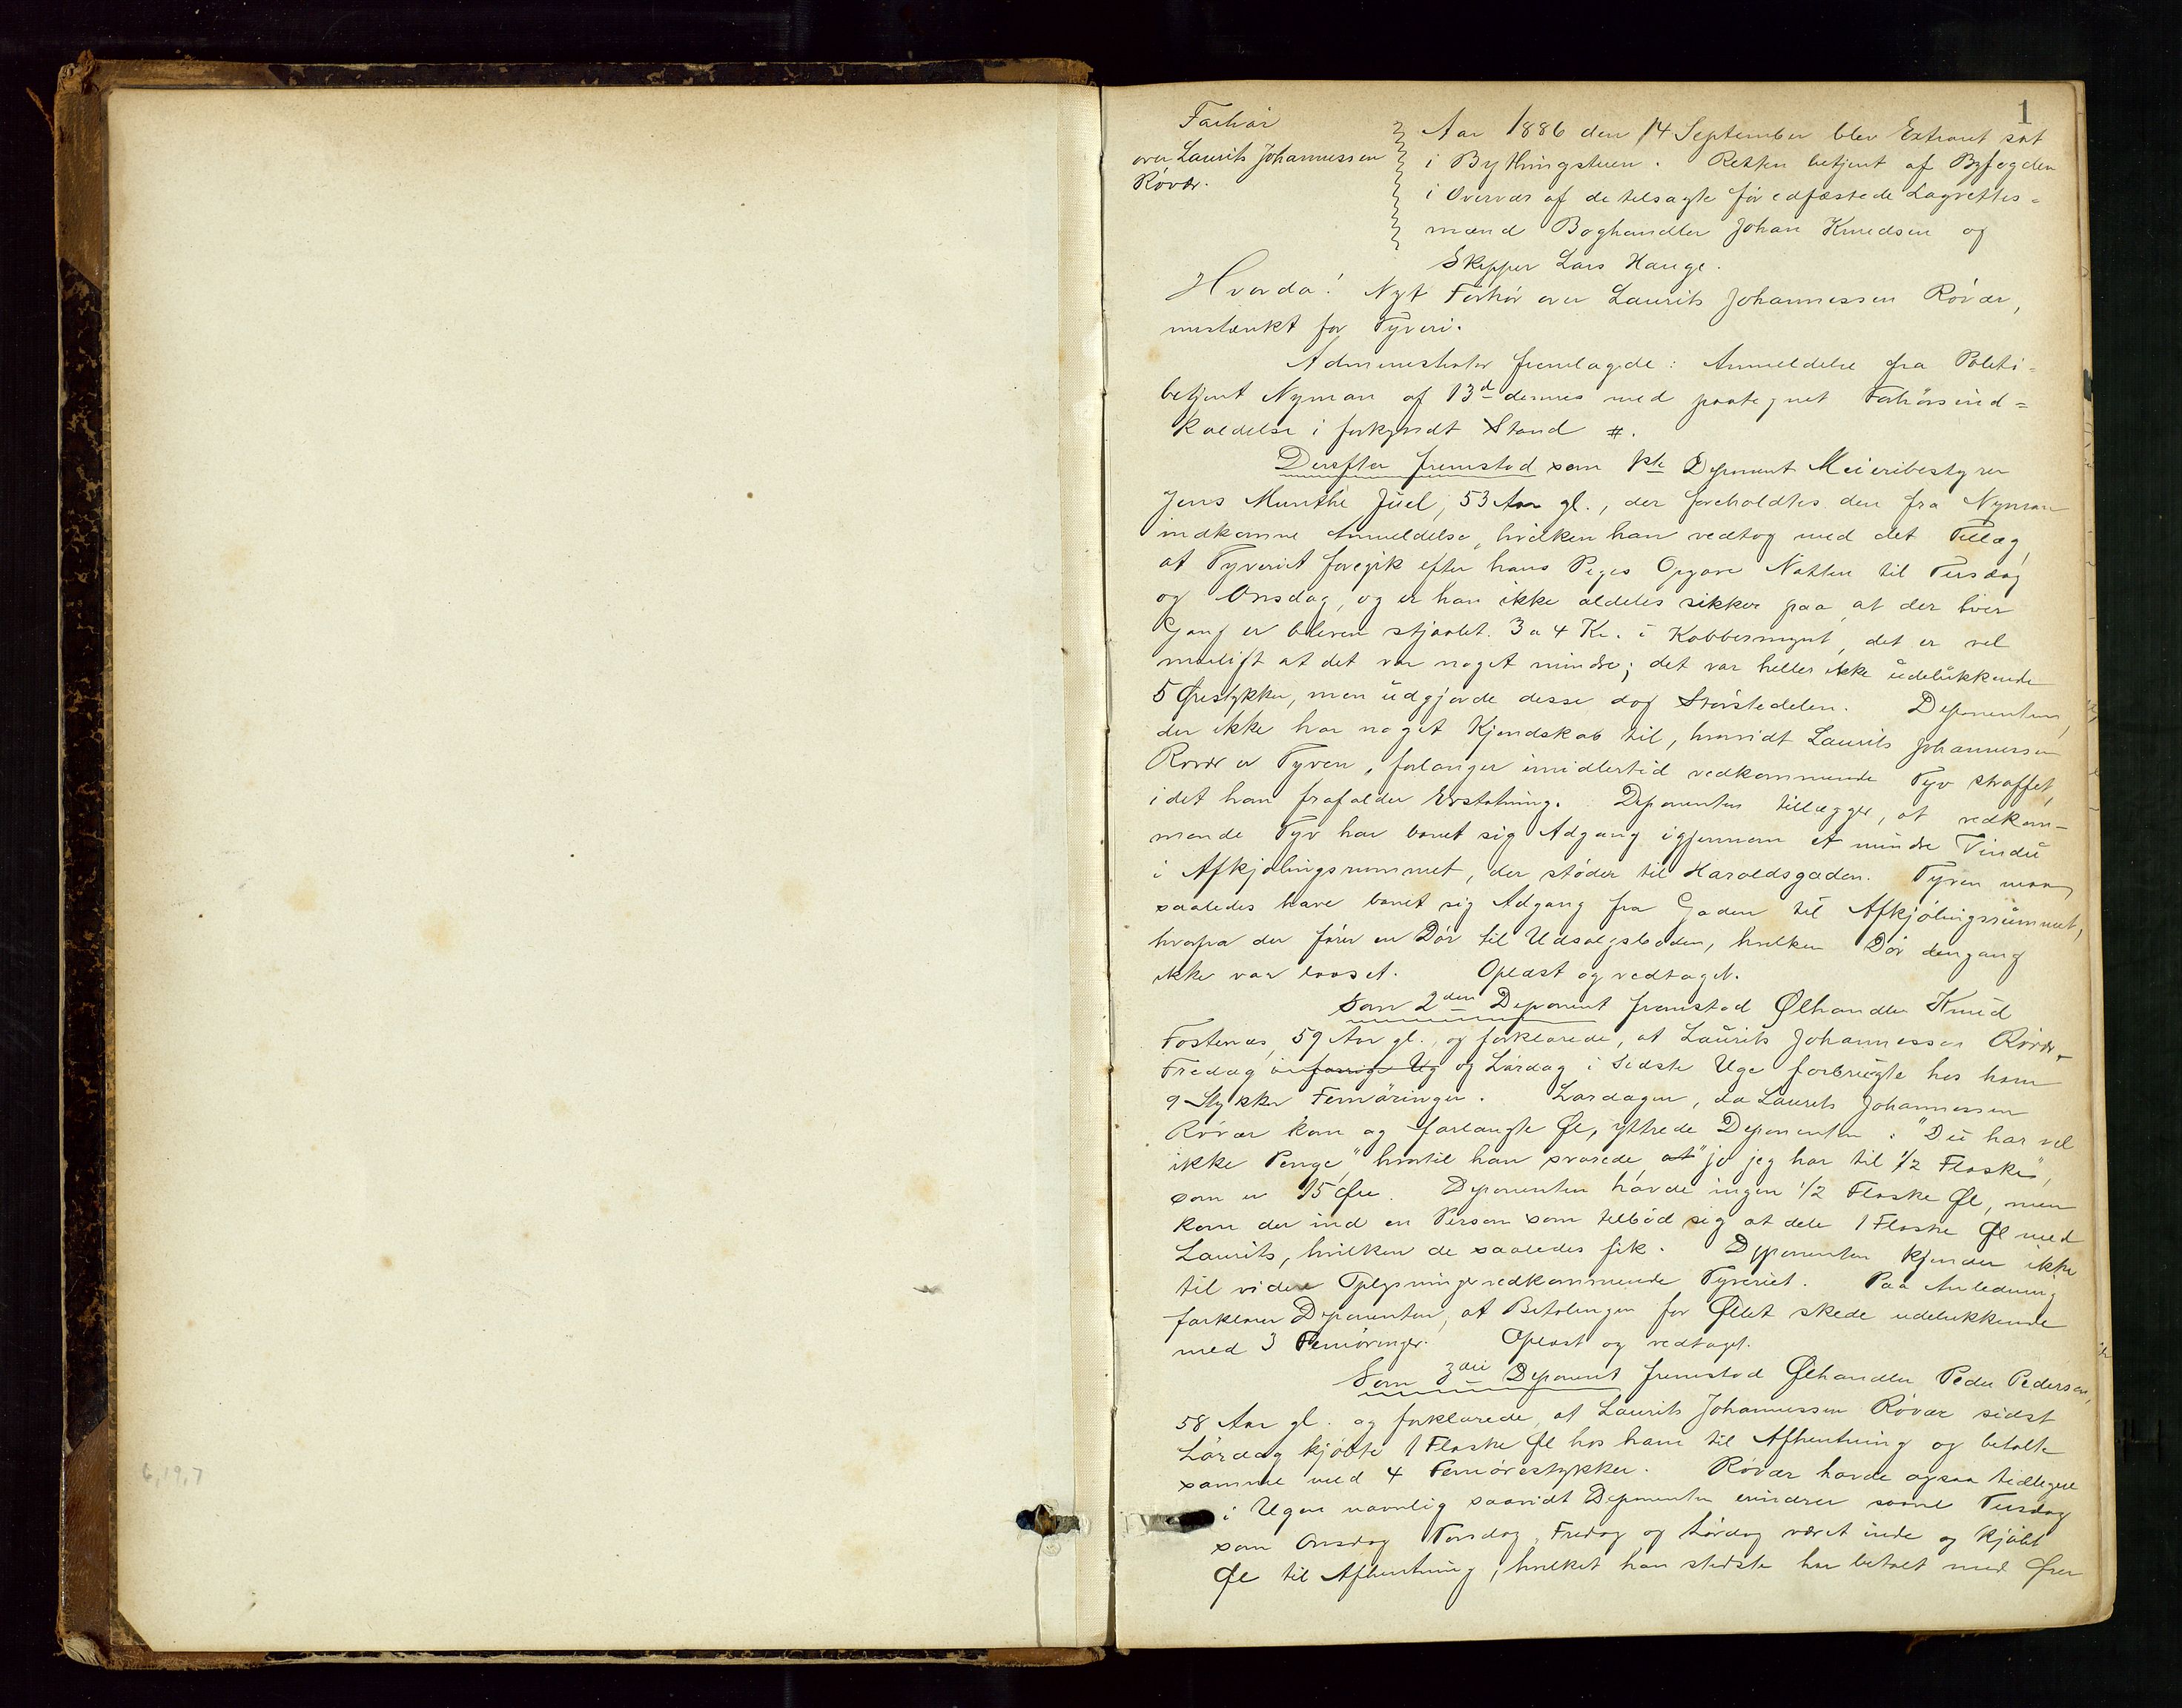 1
Forhör
over Laurits Johannessen
Rövær.
Aar 1886 den 14 September blev Extraret sat
i Bythingstuen. Retten betjent af Byfogden
i Overvær af de tilsagte før edfæstede Lagrettes=
mænd Boghandler Johan Knudsen og
Skipper Lars Hauge.
Hvorda! Nyt Forhör over Laurits Johannessen Rövær,
mistænkt for Tyveri.
Administrator fremlagde: Anmeldelse fra Politi=
betjent Nyman af 13d dennes med paategnet Forhörsind=
kaldelse i forkyndt Stand #.
Derefter fremstod som 1ste Deponent Meieribestyrer
Jens Munthe Juel, 53 Aar gl., der foreholdtes den fra Nyman
indkomne Anmeldelse, hvilken han vedtog med det Tillæg,
at Tyveriet foregik efter hans Piges Opgave Natten til Tirsdag
og Onsdag, og er han ikke aldeles sikker paa, at der hver
Gang er bleven stjaalet 3 a 4 Kr. i Kobbermynt, det er vel
muligt at det var noget mindre; det var heller ikke udelukkende
5 Ørestykker, men udgjorde disse dog Störstedelen. Deponenten,
der ikke har noget Kjendskab til, hvorvidt Laurits Johannessen
Rövær er Tyven, forlanger imidlertid vedkommende Tyv straffet,
idet han frafalder Erstatning. Deponenten tillægger, at vedkom-
mende Tyv har banet sig Adgang igjennem et mindre Vindu
i Afkjölingsrummet, der stöder til Haraldsgaden. Tyven maa
saaledes have banet sig Adgang fra Gaden til Afkjölingsrummet,
hvorfra der förer en Dör til Udsalgsboden, hvilken Dör dengang
ikke var laaset. Oplæst og vedtaget.
Som 2den Deponent fremstod Ølhandler Knud
Fostenæs, 59 Aar gl., og forklarede, at Laurits Johannessen Rövær
Fredag i forrige Ug og Lördag i sidste Uge forbrugte hos ham
9 Stykker Femöringer. Lördagen, da Laurits Johannessen
Rövær kom og forlangte Øl, yttrede Deponenten: "Du har vel
ikke Penge", hvortil han svarede, at "jo jeg har til 1/2 Flaske",
som er 15 Øre. Deponenten havde ingen 1/2 Flaske Øl, men
kom der ind en Person som tilböd sig at dele 1 Flaske Øl med
Laurits, hvilken de saaledes fik. Deponenten kjender ikke
til videre Oplysninger vedkommende Tyveriet. Paa Anledning
forklarer Deponenten, at Betalingen for Øllet skede udelukkende
med 3 Femöringer. Oplæst og vedtaget.
Som 3die Deponent fremstod Ølhandler Peder Pedersen,
58 Aar gl. og forklarede, at Laurits Johannessen Rövær sidst
Lördag kjöbte 1 Flaske Øl hos ham til Afhentning og betalte
samme med 4 Femörestykker. Rövær havde ogsaa tidligere
i Ugen navnlig saavidt Deponenten erindrer saavel Tirsdag
som Onsdag Torsdag, Fredag og Lördag været inde og kjöbt
Øl til Afhentning, hvilket han stedste har betalt med Ører
6,19,7